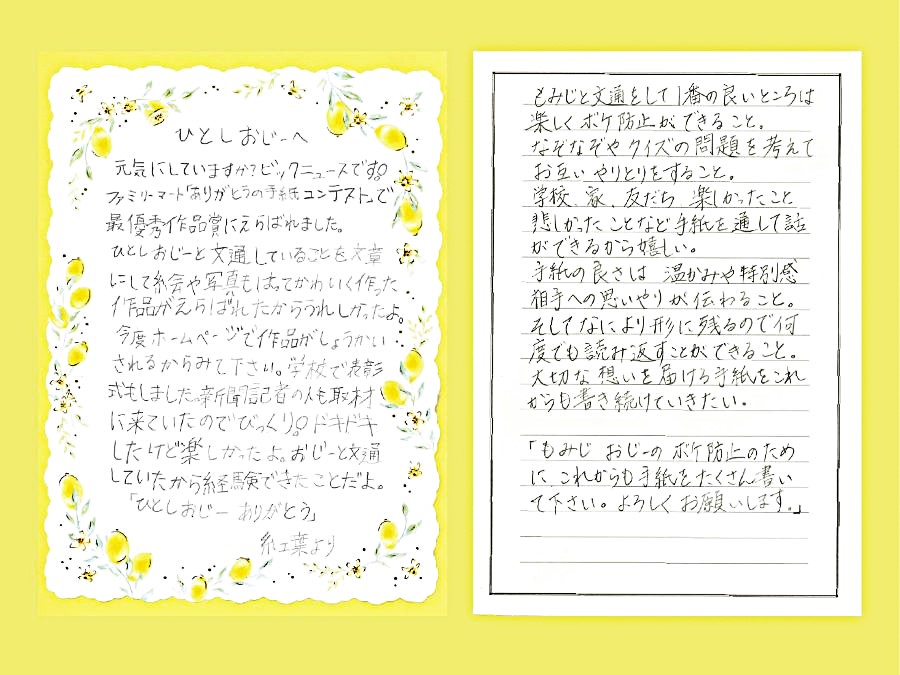 ひとしおじーへ
元気にしていますか?ビックニュースです。
ファミリーマート「ありがとうの手紙コンテスト」で
最優秀作品賞にえらばれました。
ひとしおじーと文通していることを文章
にして絵や写真もはってかわいく作った
作品がえらばれたからうれしかったよ。
今度ホームページで作品がしょうかい
されるからみて下さい。学校で表彰
式もしました。新聞記者の人も取材
に来ていたのでびっくり。ドキドキ
したけど楽しかったよ。おじーと文通
していたから経験できたことだよ。
「ひとしおじー ありがとう」
紅葉より
もみじと文通をして1番の良いところは
楽しくボケ防止ができること。
なぞなぞやクイズの問題を考えて
お互いやりとりをすること。
学校、家、友だち 楽しかったこと
悲しかったことなど手紙を通して話
ができるから嬉しい。
手紙の良さは 温かみや特別感
相手への思いやりが伝わること。
そしてなにより形に残るので何
度でも読み返すことができること。
大切な想いを届ける手紙をこれ
からも書き続けていきたい。
「もみじ おじーのボケ防止のため
に これからも手紙をたくさん書い
て下さい。よろしくお願いします。」